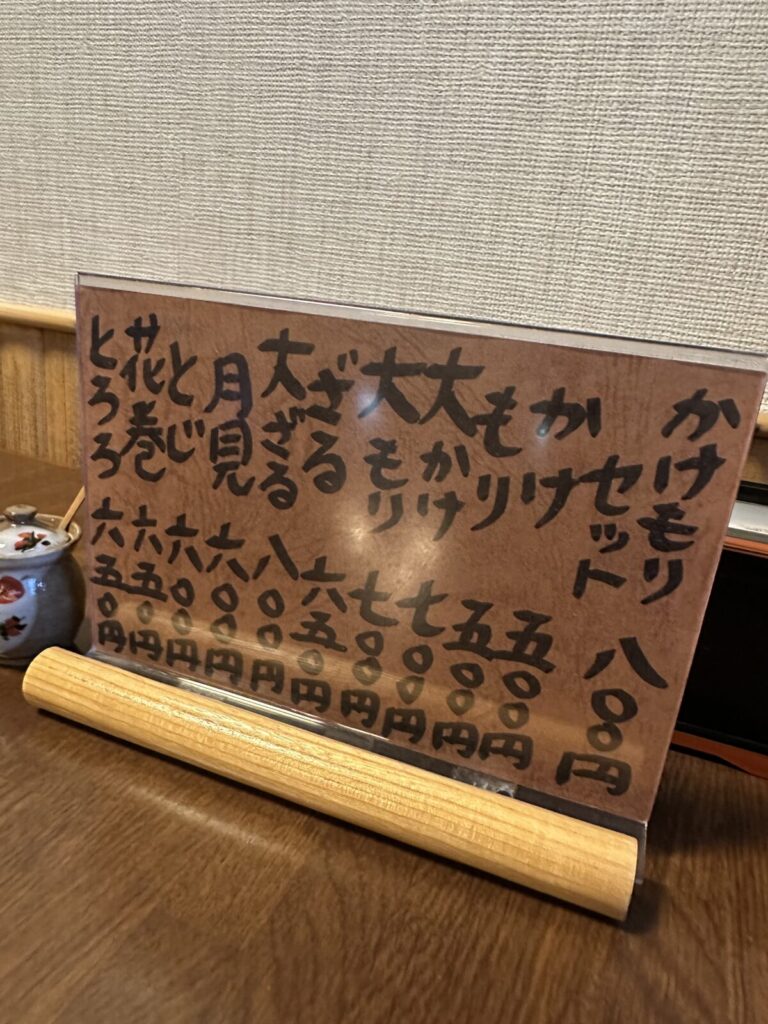 かけモリセット 八〇〇円
かけ 五〇〇円
もり 五〇〇円
大かけ 七〇〇円
大モリ 七〇〇円
ざる 六五〇円
大ざる 八〇〇円
月見 六〇〇円
とじ 六〇〇円
花巻 六五〇円
とろろ 六五〇円